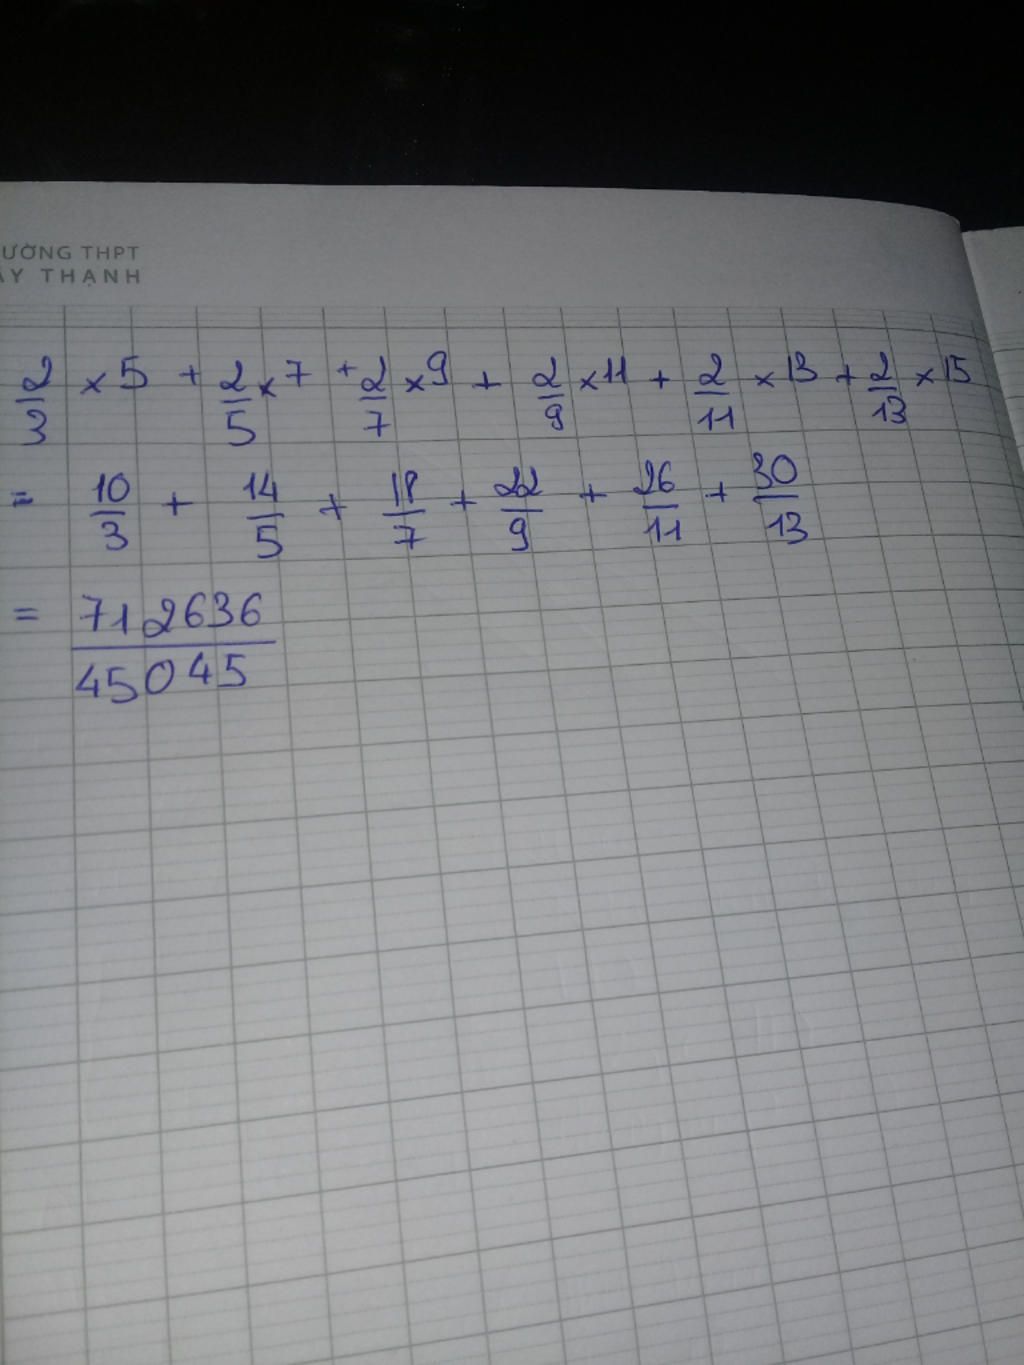 ƯỜNG THPT
ÂY THẠNH
2/3 × 5 + 2/5 × 7 + 2/7 × 9 + 2/9 × 11 + 2/11 × 13 + 2/13 × 15
= 10/3 + 14/5 + 18/7 + 22/9 + 26/11 + 30/13
= 712636/45045